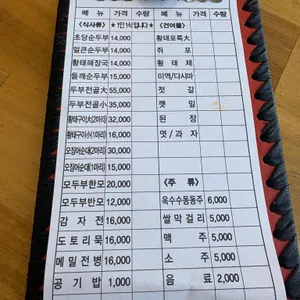 메뉴 가격 수량 메뉴 가격 수량
<식사류> ★1인1식입니다★ <건어물>
초당순두부 14,000 황태포特大
얼큰순두부 14,000 쥐 포
황태해장국 14,000 황 태 채
들깨순두부 15,000 미역/다시마
두부전골大 55,000 젓 갈
두부전골小 35,000 깻 잎
황태구이大(2마리) 32,000 된 장
황태구이小(1마리) 16,000 엿 / 과 자
오징어순대(2마리) 30,000
오징어순대(1마리) 15,000
모두부한모 20,000 <주 류>
모두부반모 12,000 옥수수동동주 6,000
감 자 전 16,000 쌀막걸리 5,000
도토리묵 16,000 맥 주 5,000
메밀전병 16,000 소 주 5,000
공 기 밥 1,000 음 료 2,000